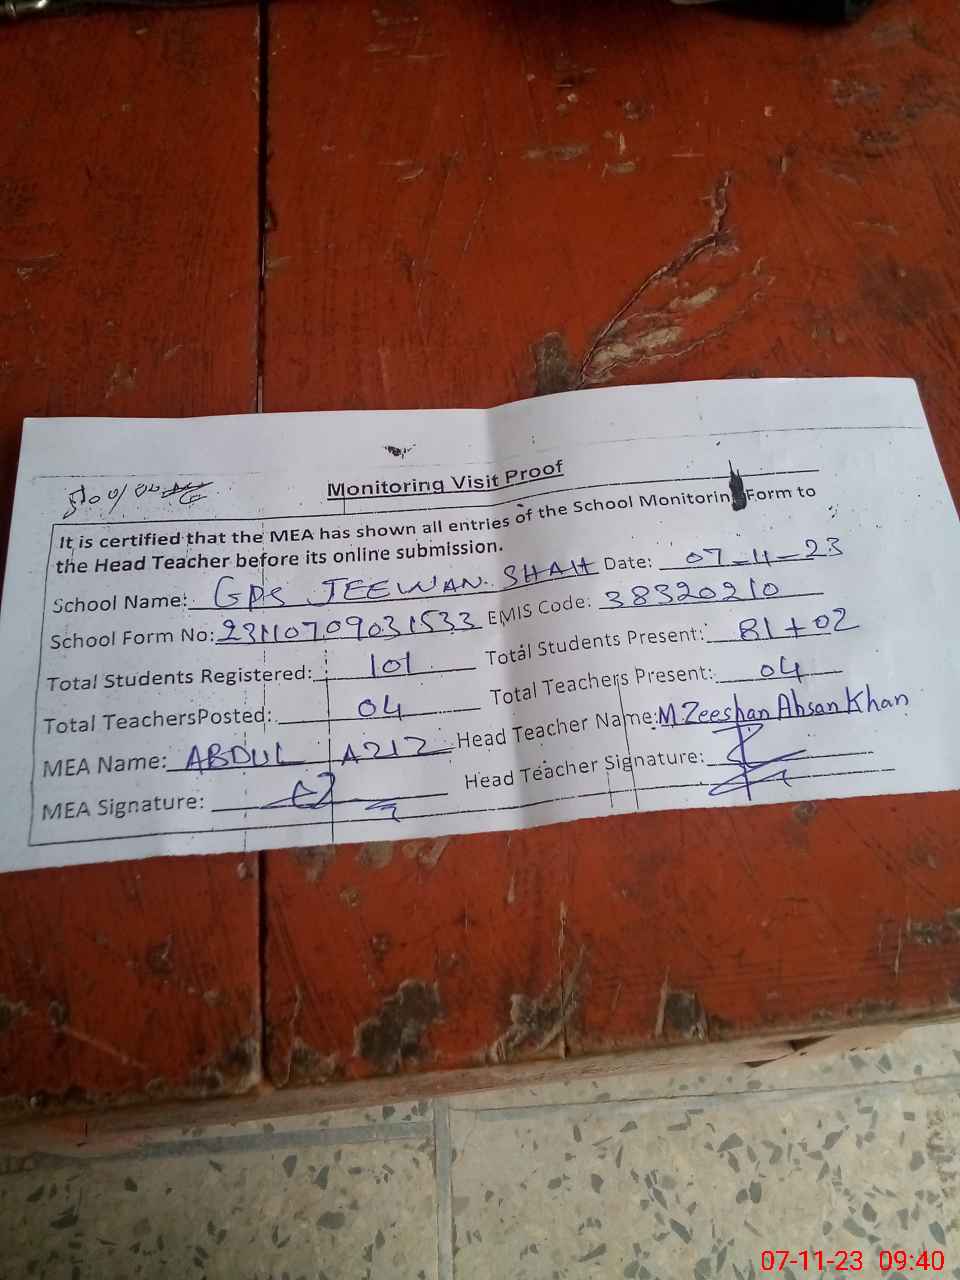 Monitoring Visit Proof
It is certified that the MEA has shown all entries of the School Monitoring Form to
the Head Teacher before its online submission.
School Name: GPS JEEWAN SHAH Date: 07-11-23
School Form No: 23110709031533 EMIS Code: 38320210
Total Students Registered: 101 Total Students Present: 81+02
Total TeachersPosted: 04 Total Teachers Present: 04
MEA Name: ABDUL AZIZ Head Teacher Name: M. Zeeshan Ahsan Khan
MEA Signature: Head Teacher Signature:
07-11-23 09:40